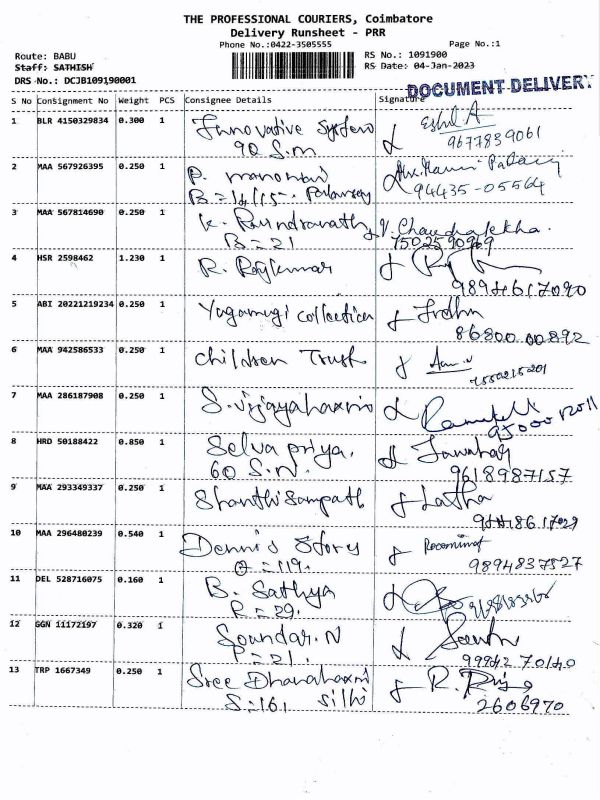 THE PROFESSIONAL COURIERS, Coimbatore
Delivery Runsheet - PRR
Phone No.:0422-3505555
Page No.:1
Route: BABU
RS No.: 1091900
Staff: SATHISH
RS Date: 04-Jan-2023
DRS No.: DCJB109190001
DOCUMENT DELIVERY
S No Consignment No Weight PCS Consignee Details Signature
1 BLR 4150329834 0.300 1 Innovative System
90 S.m 9677839061
2 MAA 567926395 0.250 1 P.
94435-05564
3 MAA 567814690 0.250 1 K. V. Chandralekha.
B=21 7502590969
4 HSR 2598462 1.230 1 R. Rajkumar
9894617090
5 ABI 20221219234 0.250 1 Yugamugi collection
86800 00892
6 MAA 942586533 0.250 1 Children Trust
7550215201
7 MAA 286187908 0.250 1 S.
8 HRD 50188422 0.850 1 Selva priya.
60 S.N. 9618987157
9 MAA 293349337 0.250 1 Shanthi Sampath Latha
10 MAA 296480239 0.540 1 Dennis Story
=119. 9894837527
11 DEL 528716075 0.160 1 B. Sathya
R=29.
12 GGN 11172197 0.320 1 Soundar.N
P=21. 99942 70140
13 TRP 1667349 0.250 1 Sree R. Priya
S=161 silhi 2606970